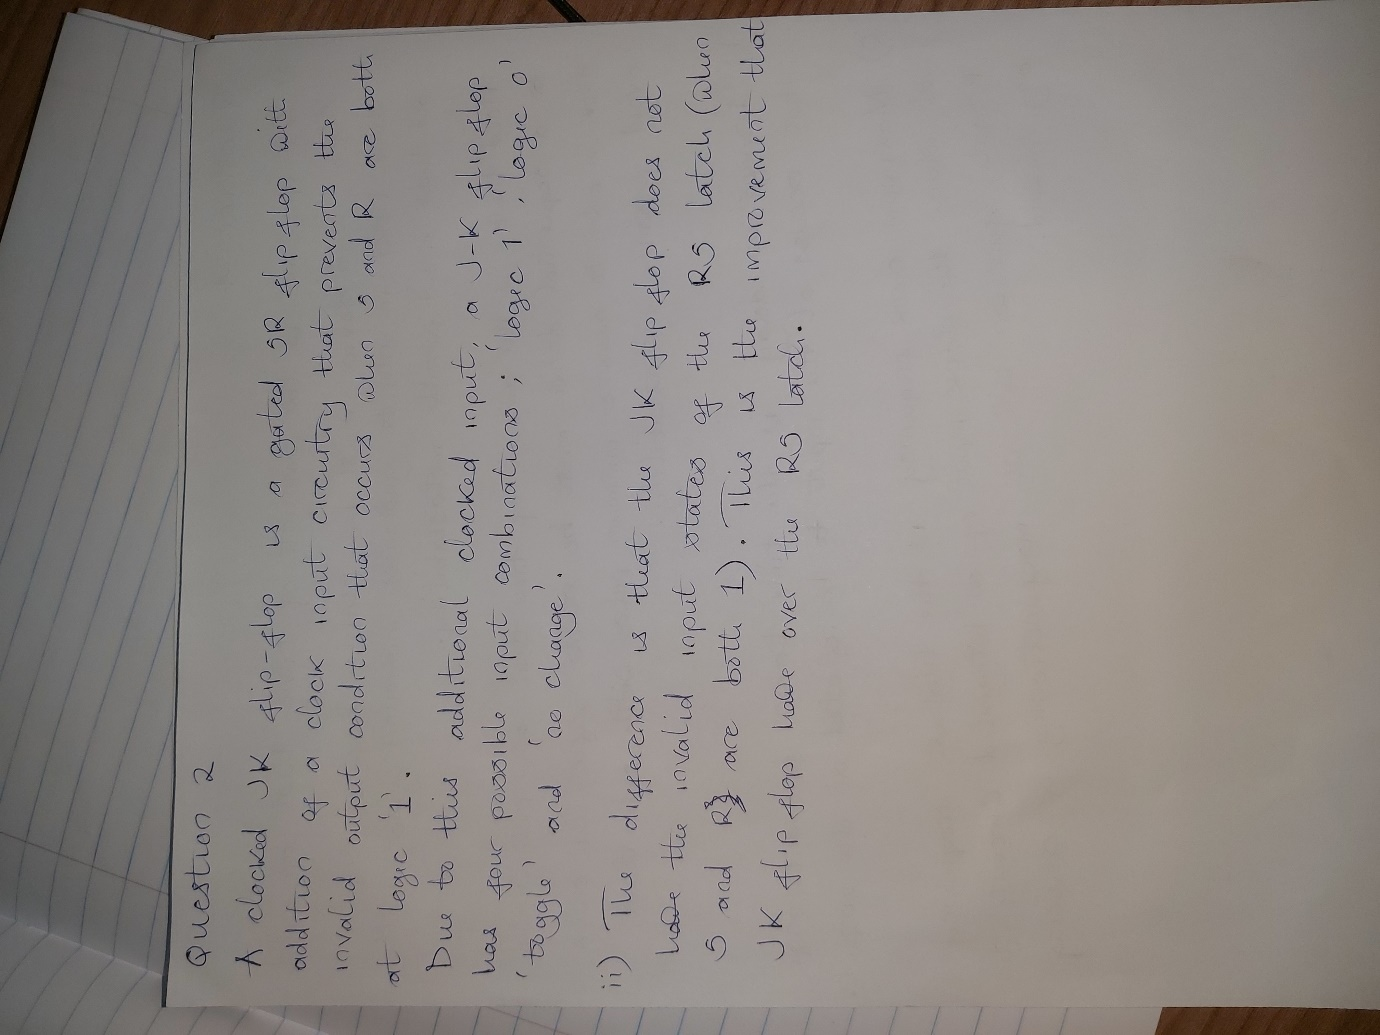 Question 2
A clocked JK flip-flop is a gated SR flip flop with
addition of a clock input circuitry that prevents the
invalid output condition that occurs when S and R are both
at logic '1'.
Due to this additional clocked input, a J-K flip flop
has four possible input combinations; 'logic 1', 'logic 0'
'toggle' and 'no change'.
ii) The difference is that the JK flip flop does not
have the invalid input states of the RS latch (when
S and R are both 1). This is the improvement that
JK flip flop have over the RS latch.